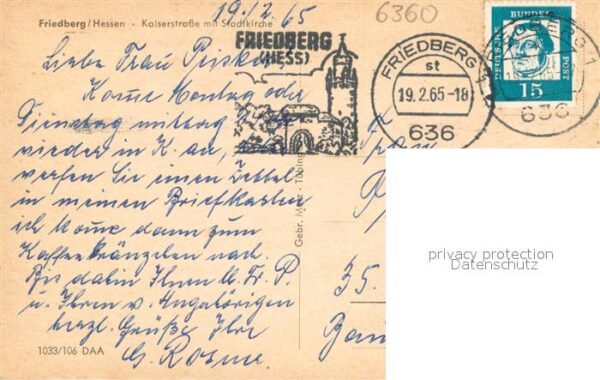 Friedberg/Hessen - Kaiserstraße mit Stadtkirche
19./2. 65
6360
Liebe Frau
Komme Montag oder
Dienstag mittag
wieder in K. an,
werfen Sie einen Zettel
in meinen Briefkasten
ich komme dann zum
Kaffeekränzchen nach.
Bis dahin Ihnen lb. Fr. P.
u. Ihren v. Angehörigen
herzl. Grüße Ihre
G.
1033/106 DAA
Gebr. Metz - Tübingen
FRIEDBERG
(HESS)
FRIEDBERG
st
19.2.65-18
636
DEUTSCHE BUNDESPOST
15
636
Frau
35.
privacy protection
Datenschutz